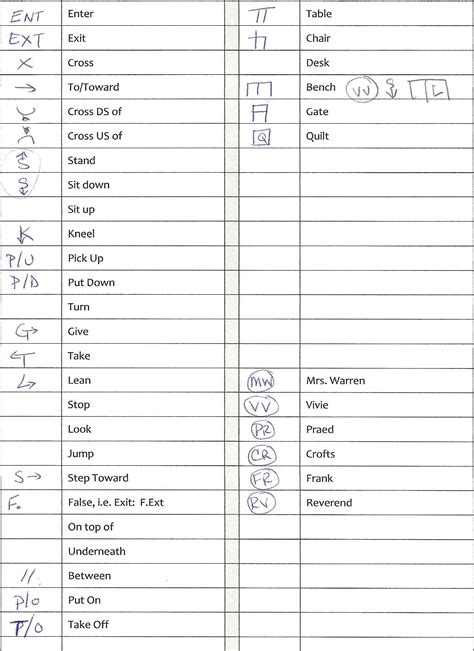 ENT Enter Table
EXT Exit Chair
X Cross Desk
→ To/Toward Bench VV S L
Cross DS of Gate
Cross US of Q Quilt
S Stand
S Sit down
Sit up
K Kneel
P/U Pick Up
P/D Put Down
Turn
G→ Give
←T Take
L→ Lean MW Mrs. Warren
Stop VV Vivie
Look PR Praed
Jump CR Crofts
S→ Step Toward FR Frank
F. False, i.e. Exit: F.Ext RV Reverend
On top of
Underneath
// Between
p/o Put On
T/O Take Off